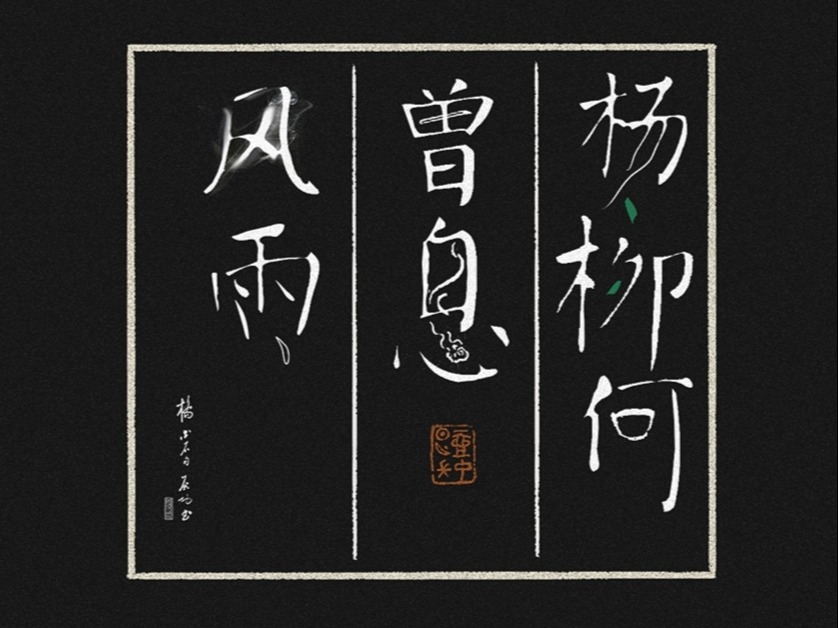 杨柳何
曾息
风雨